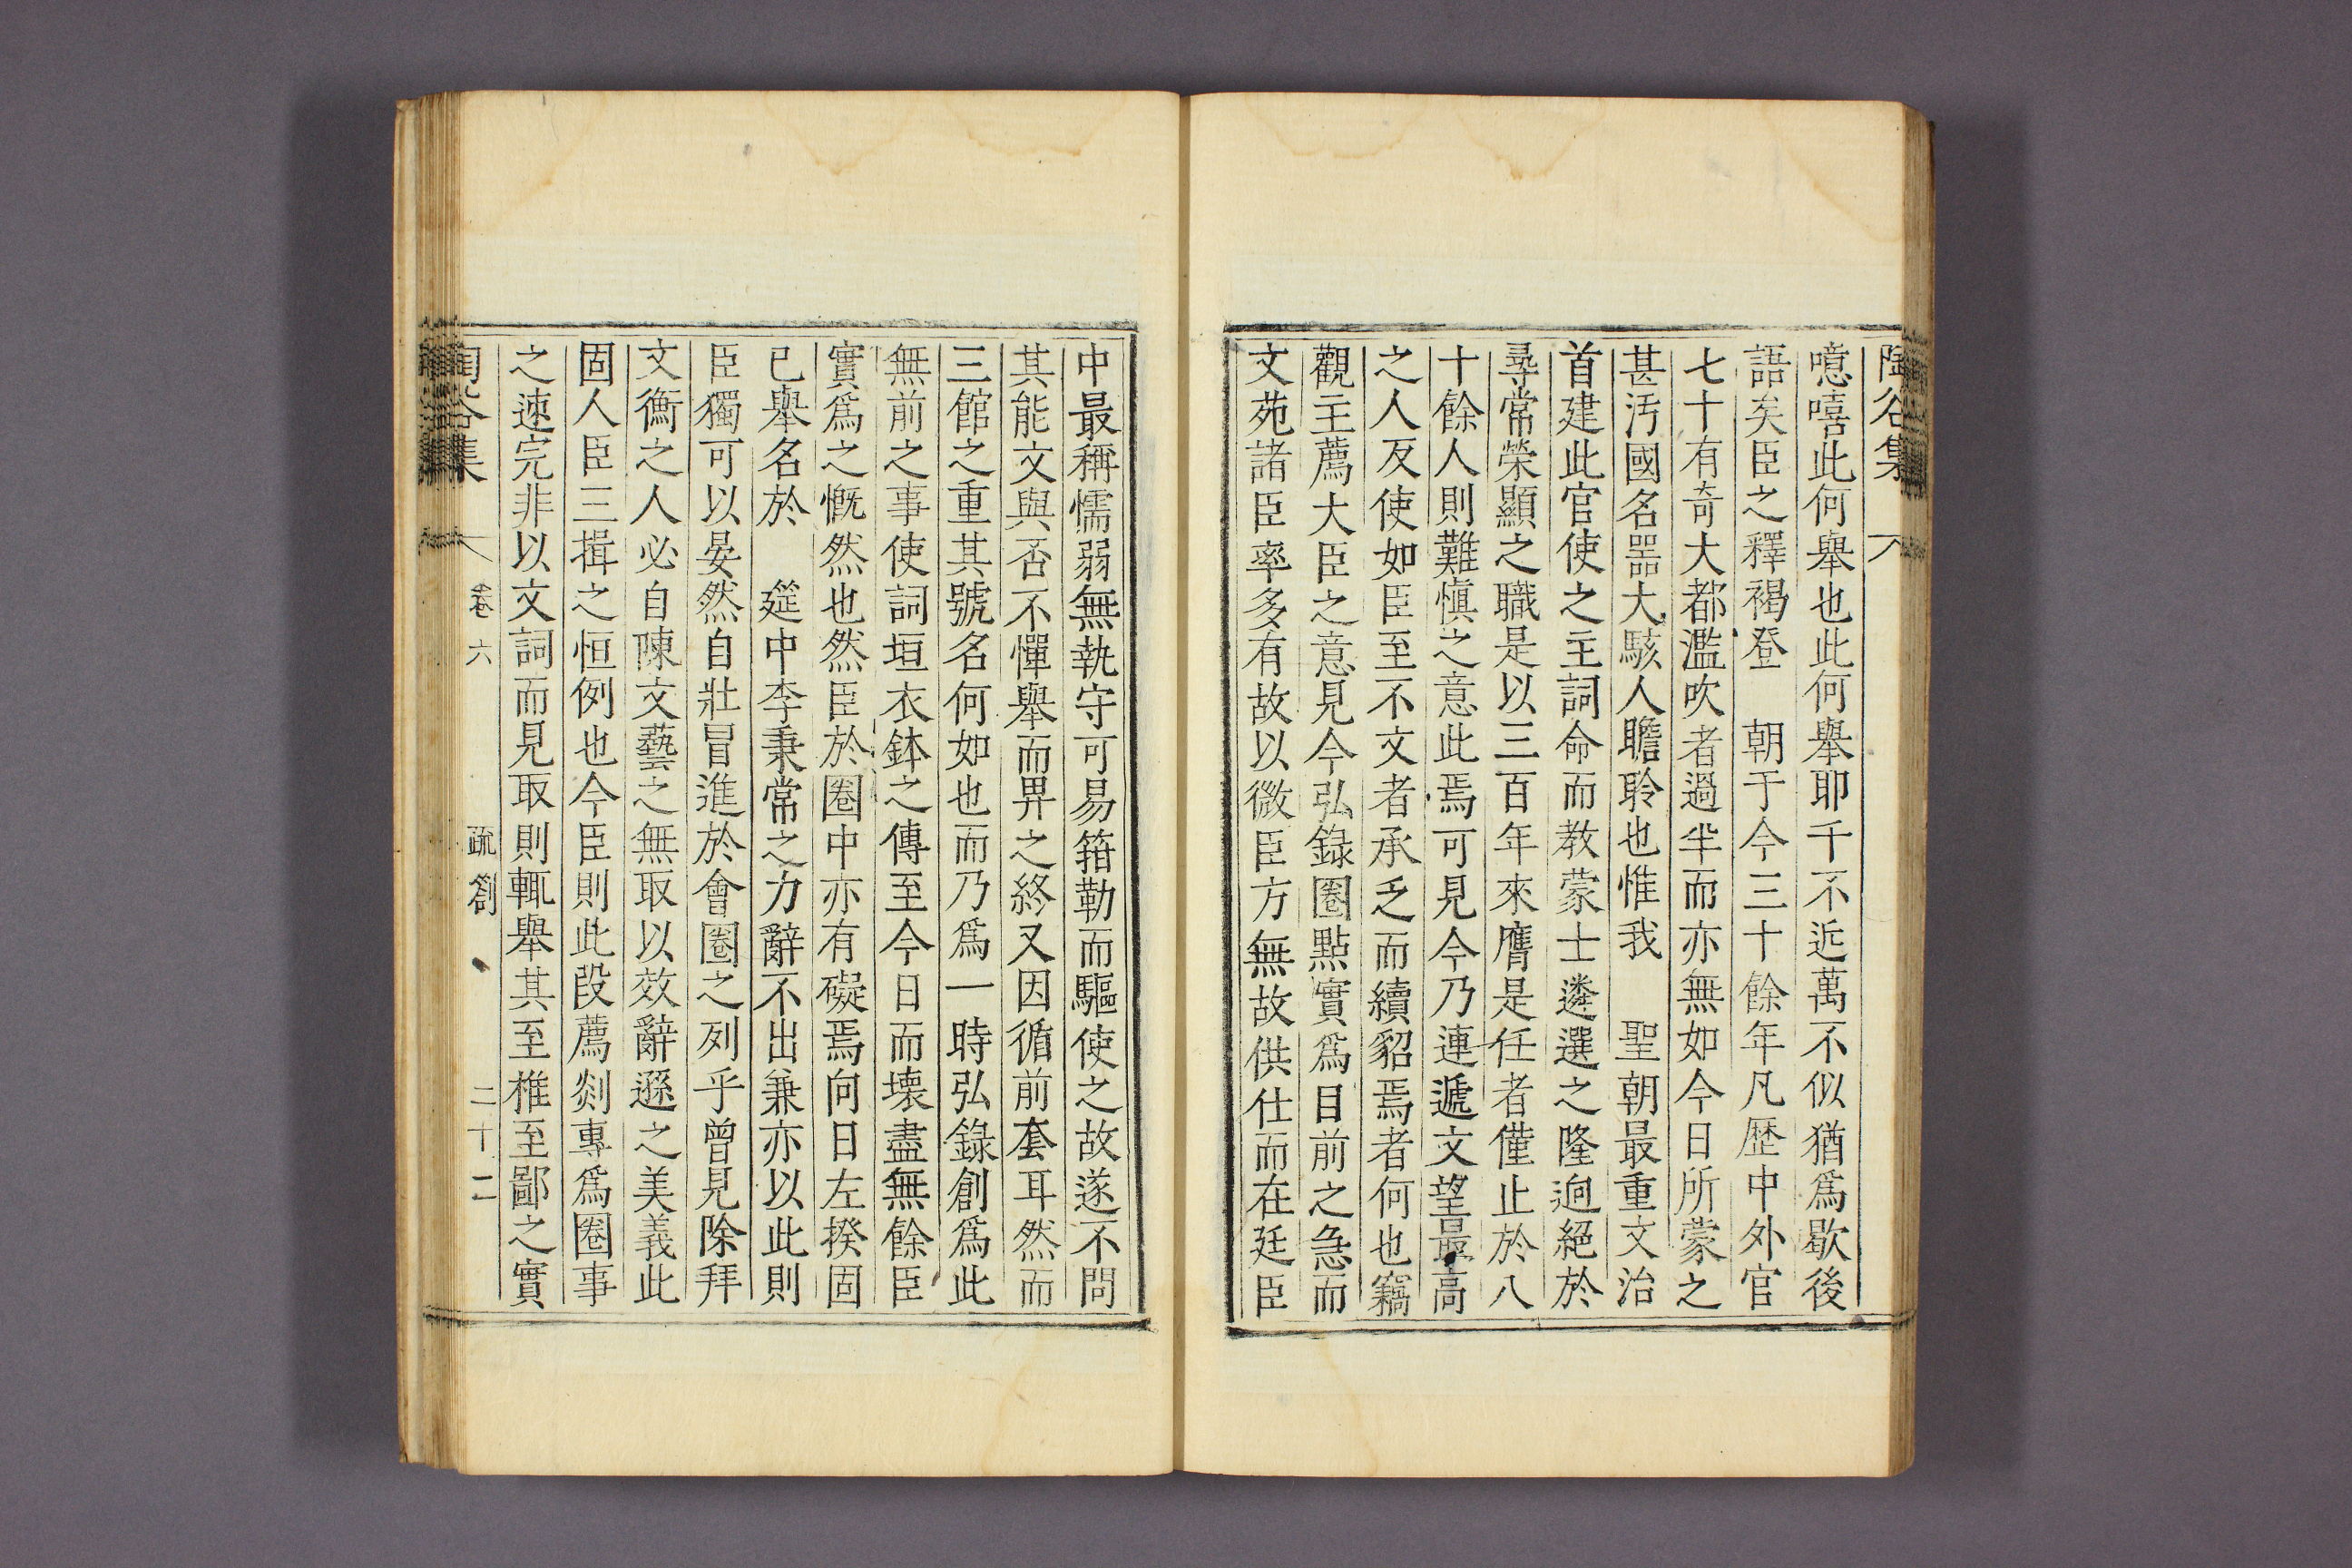 陶谷集
噫嘻此何舉也此何舉耶千不近萬不似猶爲歇後
語矣臣之釋褐登 朝于今三十餘年凡歷中外官
七十有奇大都濫吹者過半而亦無如今日所蒙之
甚汚國名噐大駭人瞻聆也惟我 聖朝最重文治
首建此官使之主詞命而教蒙士遴選之隆逈絕於
尋常榮顯之職是以三百年來膺是任者僅止於八
十餘人則難愼之意此焉可見今乃連遞文望最高
之人反使如臣至不文者承乏而續貂焉者何也竊
觀主薦大臣之意見今弘錄圈點實爲目前之急而
文苑諸臣率多有故以微臣方無故供仕而在廷臣
中最稱懦弱無執守可易箝勒而驅使之故遂不問
其能文與否不憚舉而畀之終又因循前套耳然而
三館之重其號名何如也而乃爲一時弘錄創爲此
無前之事使詞垣衣鉢之傳至今日而壊盡無餘臣
實爲之慨然也然臣於圈中亦有礙焉向日左揆固
已舉名於 筵中李秉常之力辭不出兼亦以此則
臣獨可以晏然自壯冒進於會圈之列乎曾見除拜
文衡之人必自陳文藝之無取以效辭遜之美義此
固人臣三揖之恒例也今臣則此段薦剡專爲圈事
之速完非以文詞而見取則輒舉其至椎至鄙之實
陶谷集 卷六 疏劄 二十二